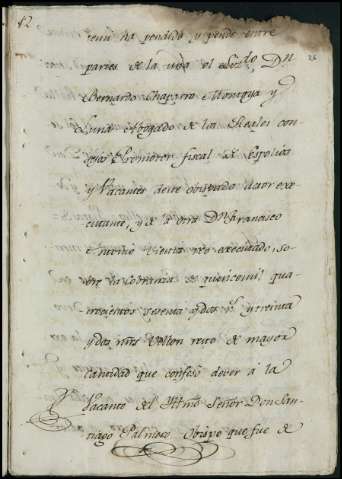 12
ha pendido y pende entre
partes de la una el Lizdo Dn
Bernardo Chaparro Moniqua y
Luna Abogado de los Reales con
sejos Promotor fiscal de Espolios
y Vacantes deste obispado actor exe
cutante, y de la otra Dn Francisco
reo executado, so
bre la cobranza de quince mil qua
trocientos setenta y dos rs y treinta
y dos mrs Vellon resto de mayor
cantidad que confesó dever a la
Vacante del Illmo Señor Don San
tiago Palmero Obispo que fue de